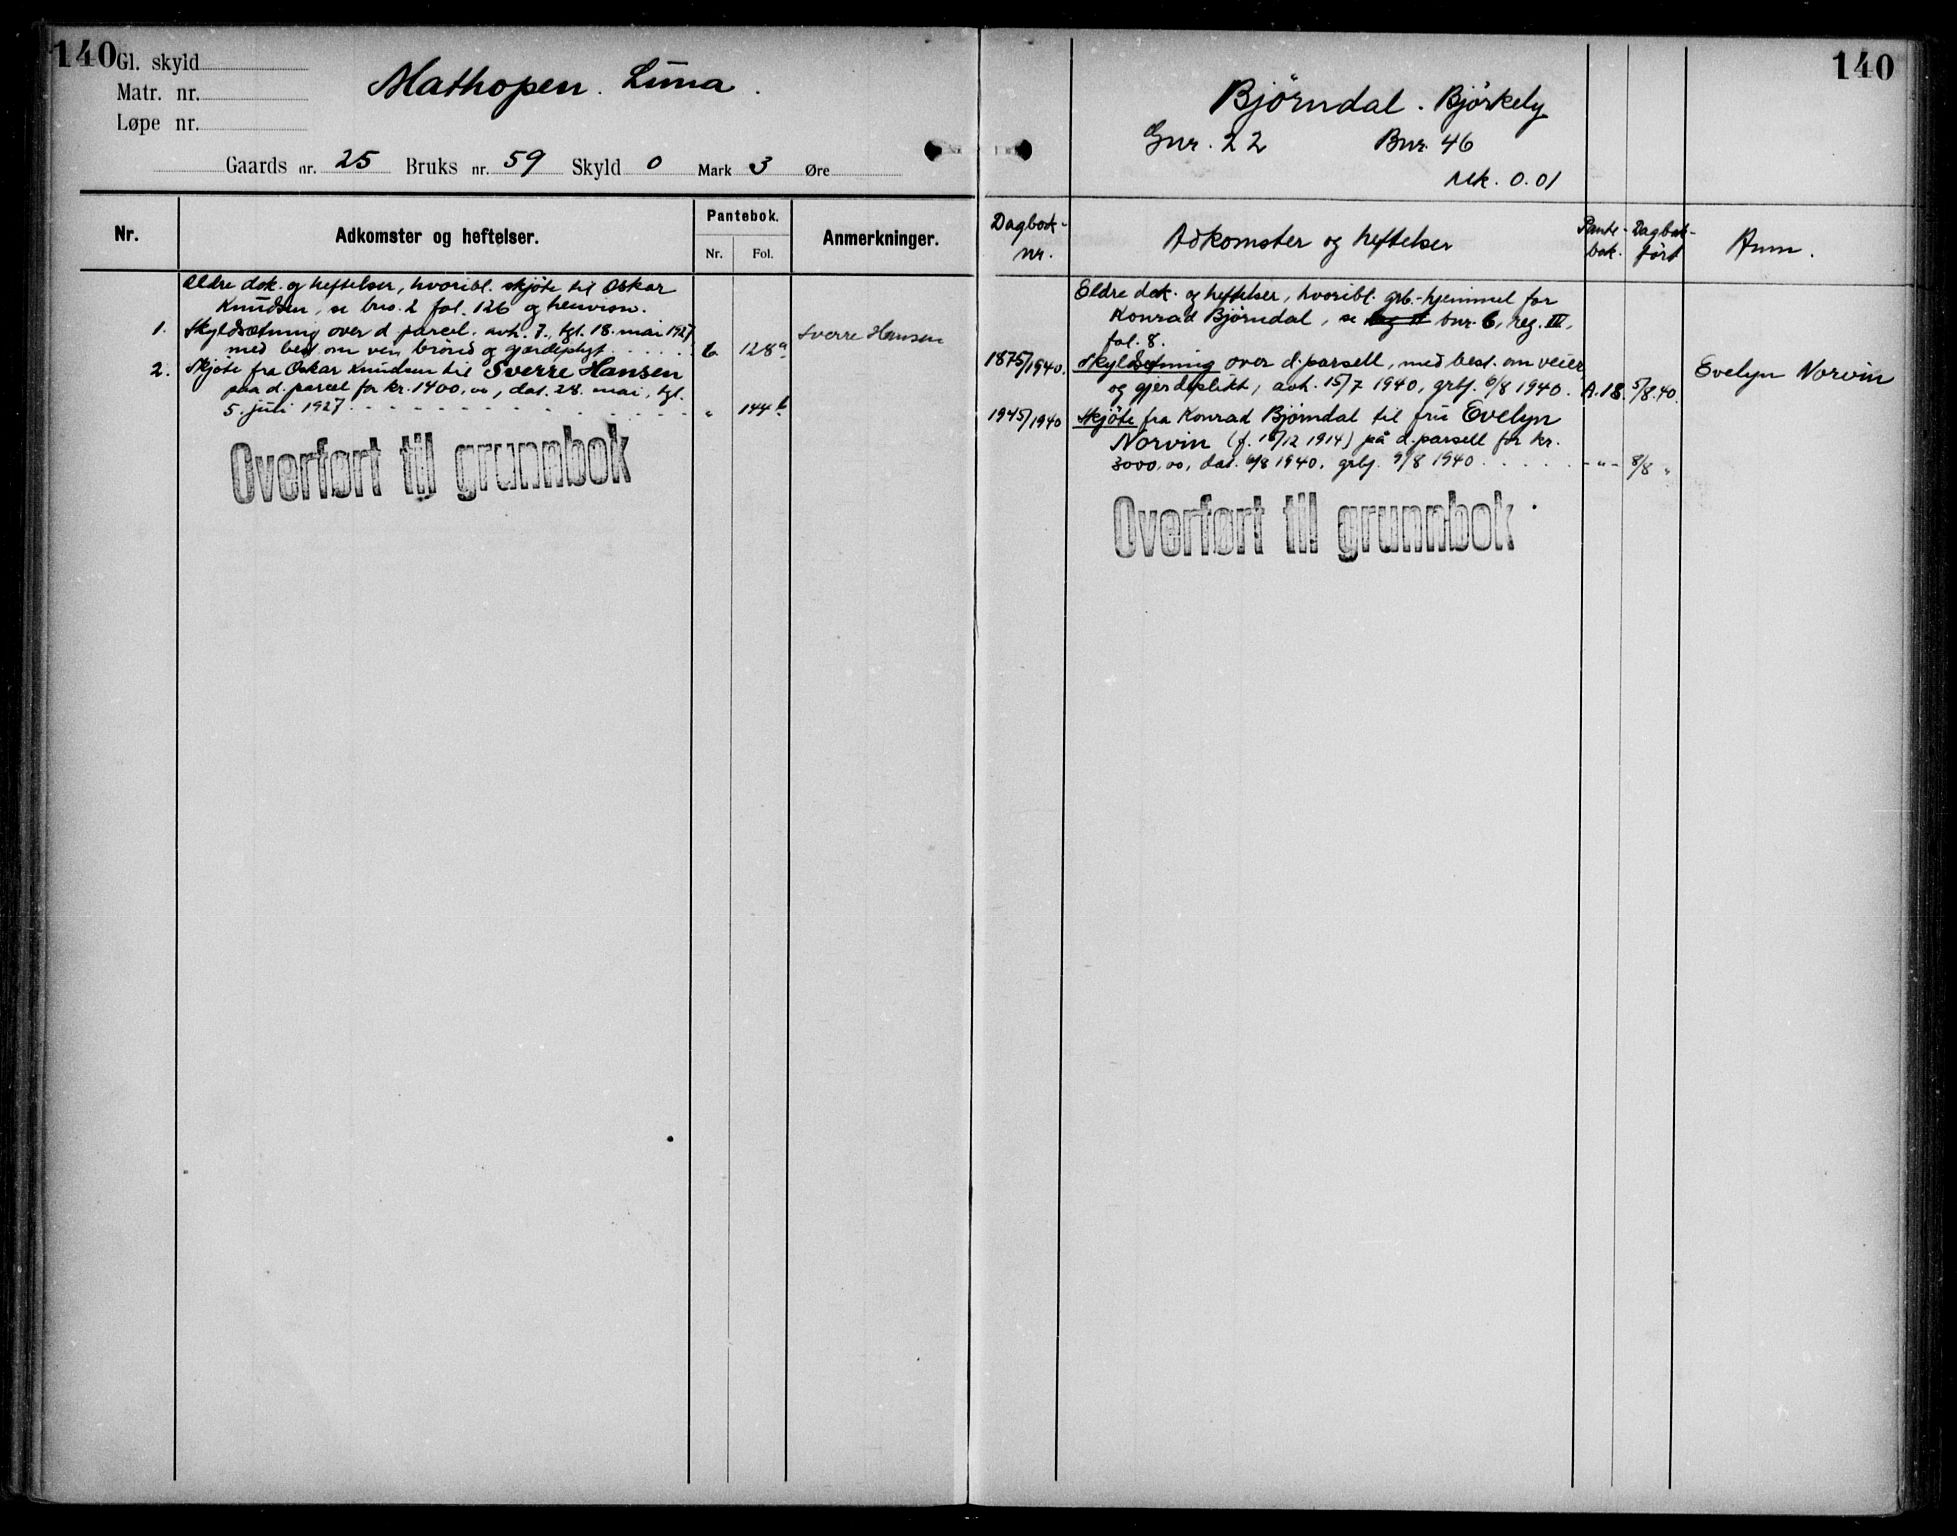 140
Gl. skyld
Matr. nr.
Løpe nr.
Mathopen. Luna.
Gaards nr. 25 Bruks nr. 59 Skyld 0 Mark 3 Øre
Nr. Adkomster og heftelser. Pantebok. Anmerkninger.
Nr. Fol.
Ældre dok. og heftelser, hvoribl. skjøte til Oskar
Knudsen, se bno. 2 fol. 126 og henvisn.
1. Skyldsætning over d. parcel. avh. 7., tgl. 18. mai 1927
med best. om vei, brønd og gjærdepligt 6. 128a Sverre Hansen
2. Skjøte fra Oskar Knudsen til Sverre Hansen
paa d. parcel for kr. 1400,00, dat. 28. mai, tgl.
5. juli 1927 " 144b
Overført til grunnbok
140
Bjørndal. Bjørkely
Gnr. 22 Bnr. 46
mk. 0.01
Dagbok-nr. Adkomster og heftelser Pante-bok. Dagbok-ført Anm.
Eldre dok. og heftelser, hvoribl. grb.-hjemmel for
Konrad Bjørndal, se bnr. 6, reg. III,
fol. 8.
1875/1940. Skyldsetning over d. parsell, med best. om veier
og gjerdeplikt, avh. 15/7 1940, grbj. 6/8 1940. A.18. 5/8.40. Evelyn Norvin
1945/1940 Skjøte fra Konrad Bjørndal til fru Evelyn
Norvin (f. /12 1914) på d. parsell for kr.
3000,00, dat. 6/8 1940, grbj. 9/8 1940 -"- 8/8 "
Overført til grunnbok